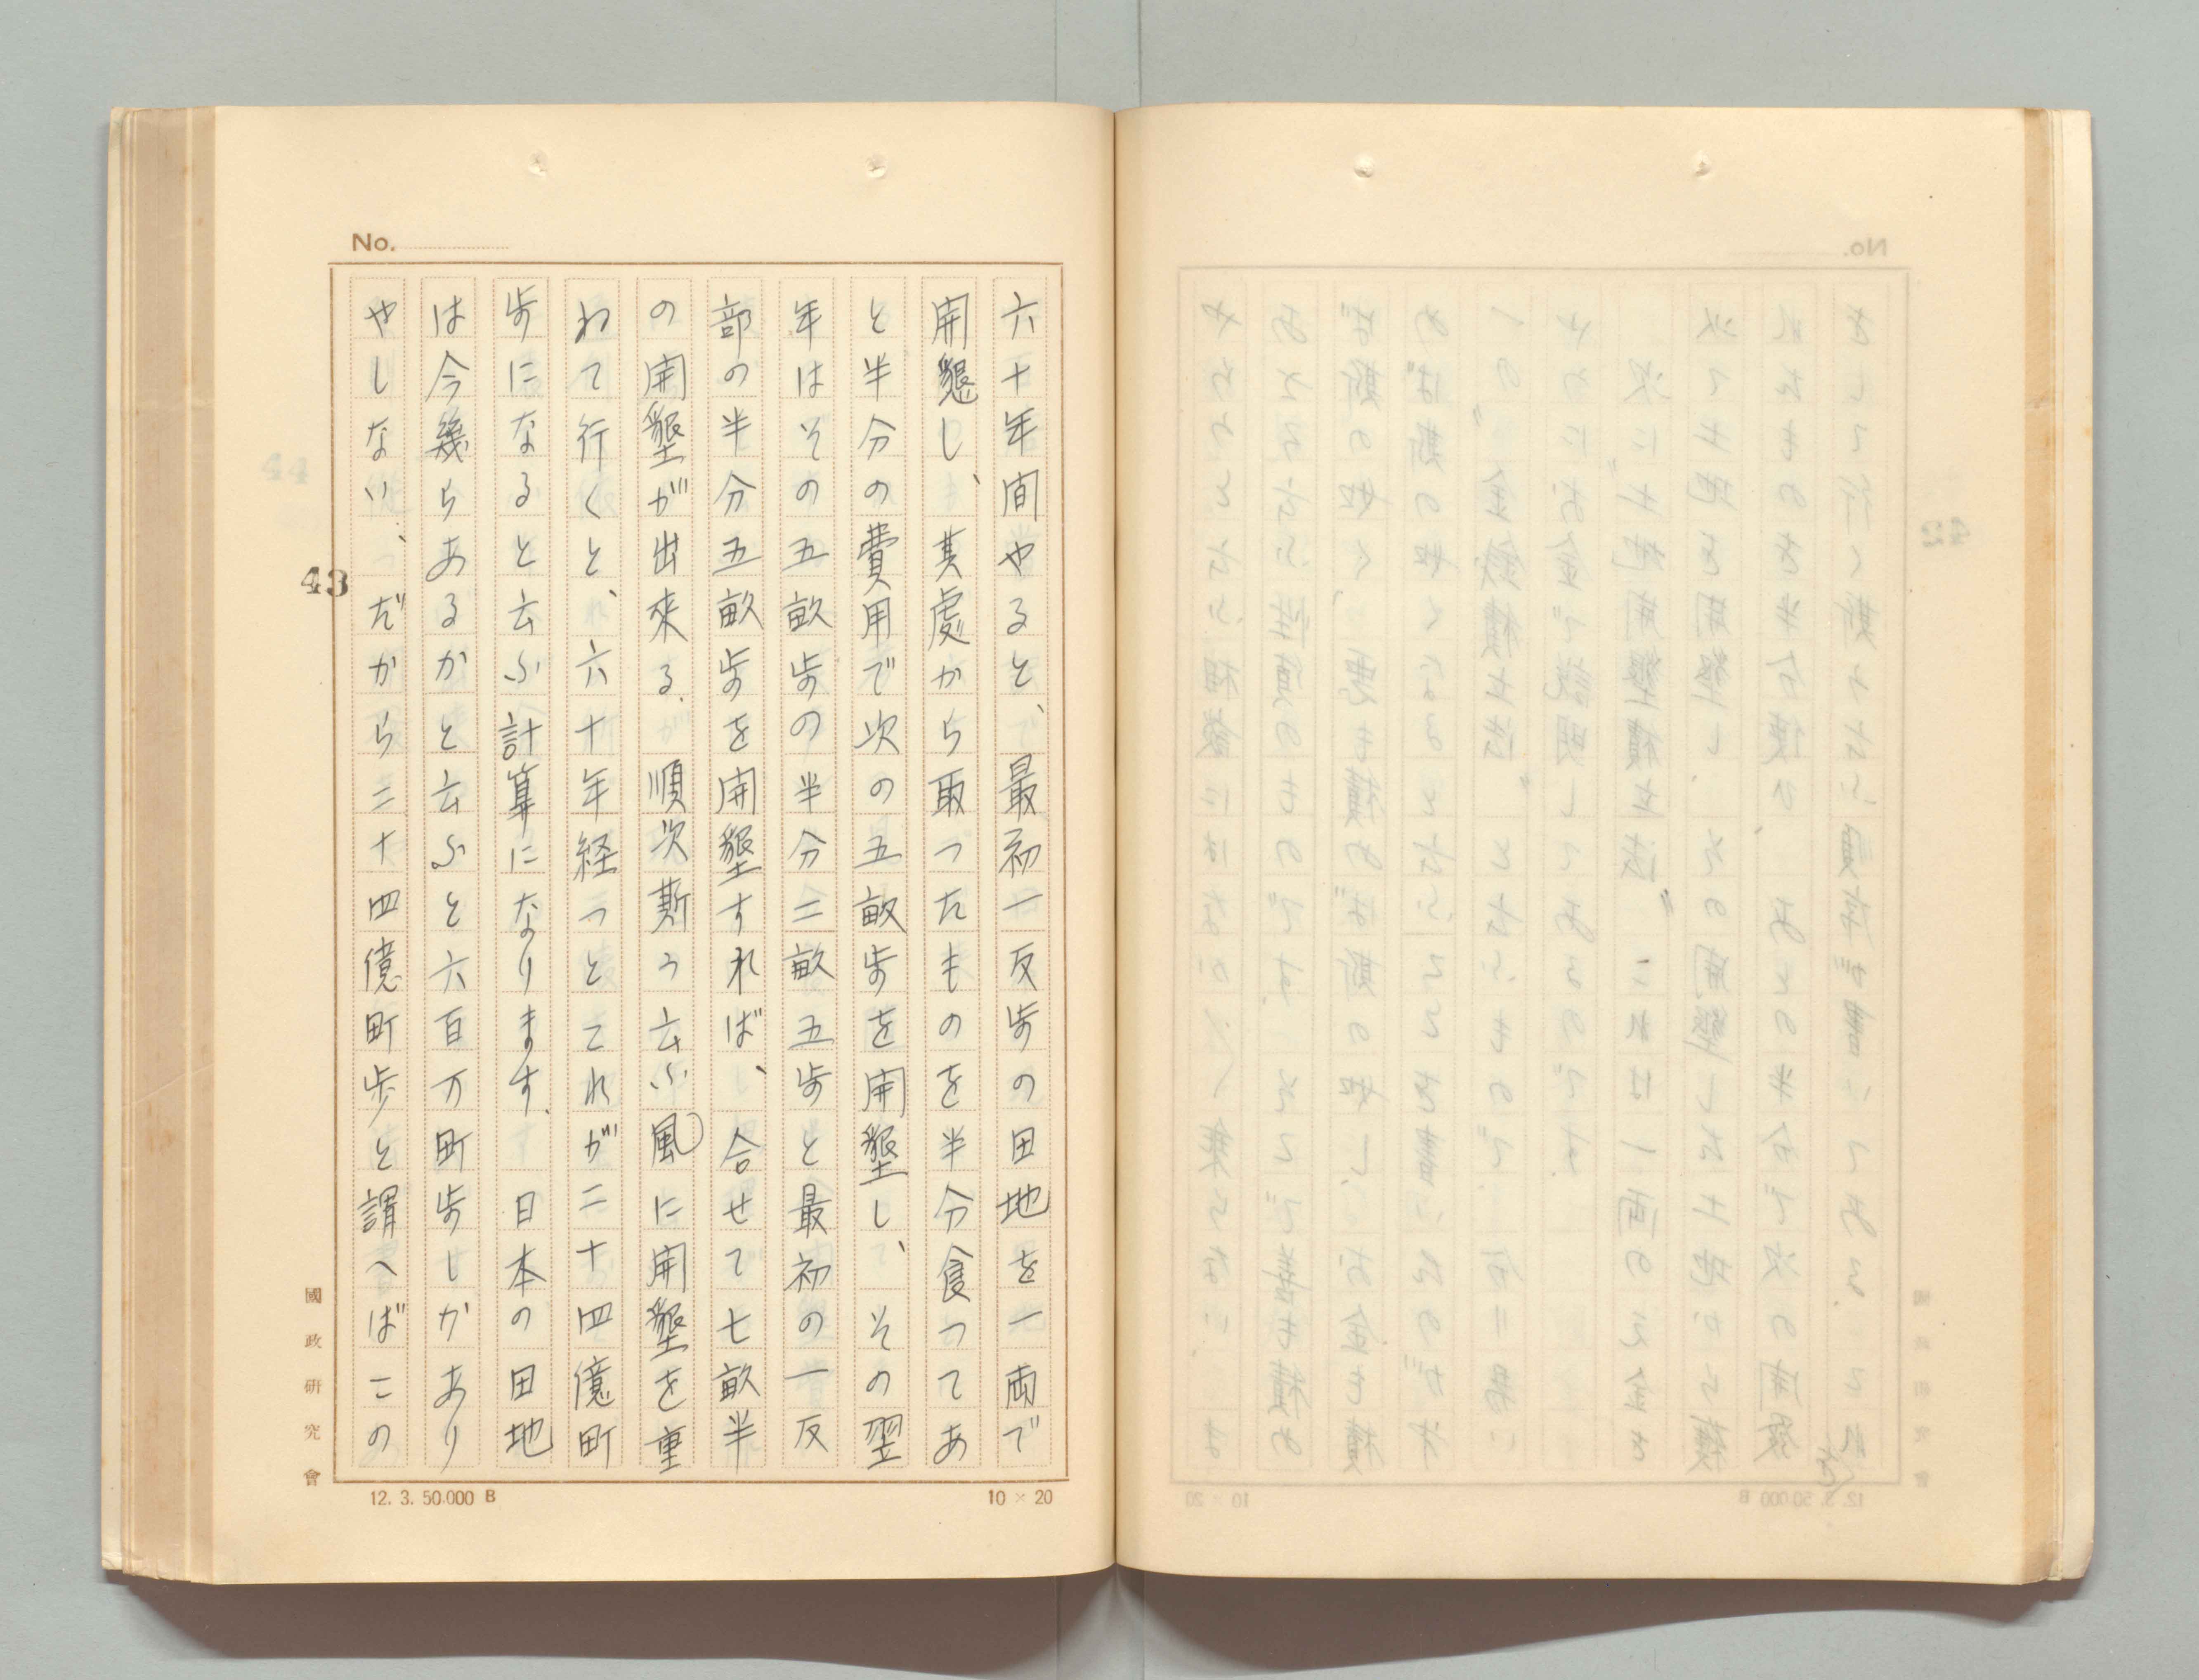 No.
六十年間やると、最初一反歩の田地を一両で
開懇し、其處から取つたものを半分食つてあ
と半分の費用で次の五畝歩を開墾し、その翌
年はその五畝歩の半分二畝五歩と最初の一反
部の半分五畝歩を開墾すれば、合せて七畝半
の開墾が出来る.順次斯う云ふ風に開墾を重
ねて行くと、六十年経つとこれが二十四億町
歩になると云ふ計算になります.日本の田地
は今幾らあるかと云ふと六百万町歩しかあり
やしない、だから二十四億町歩と謂へばこの
43
國政研究會
12. 3. 50.000 B
10 × 20